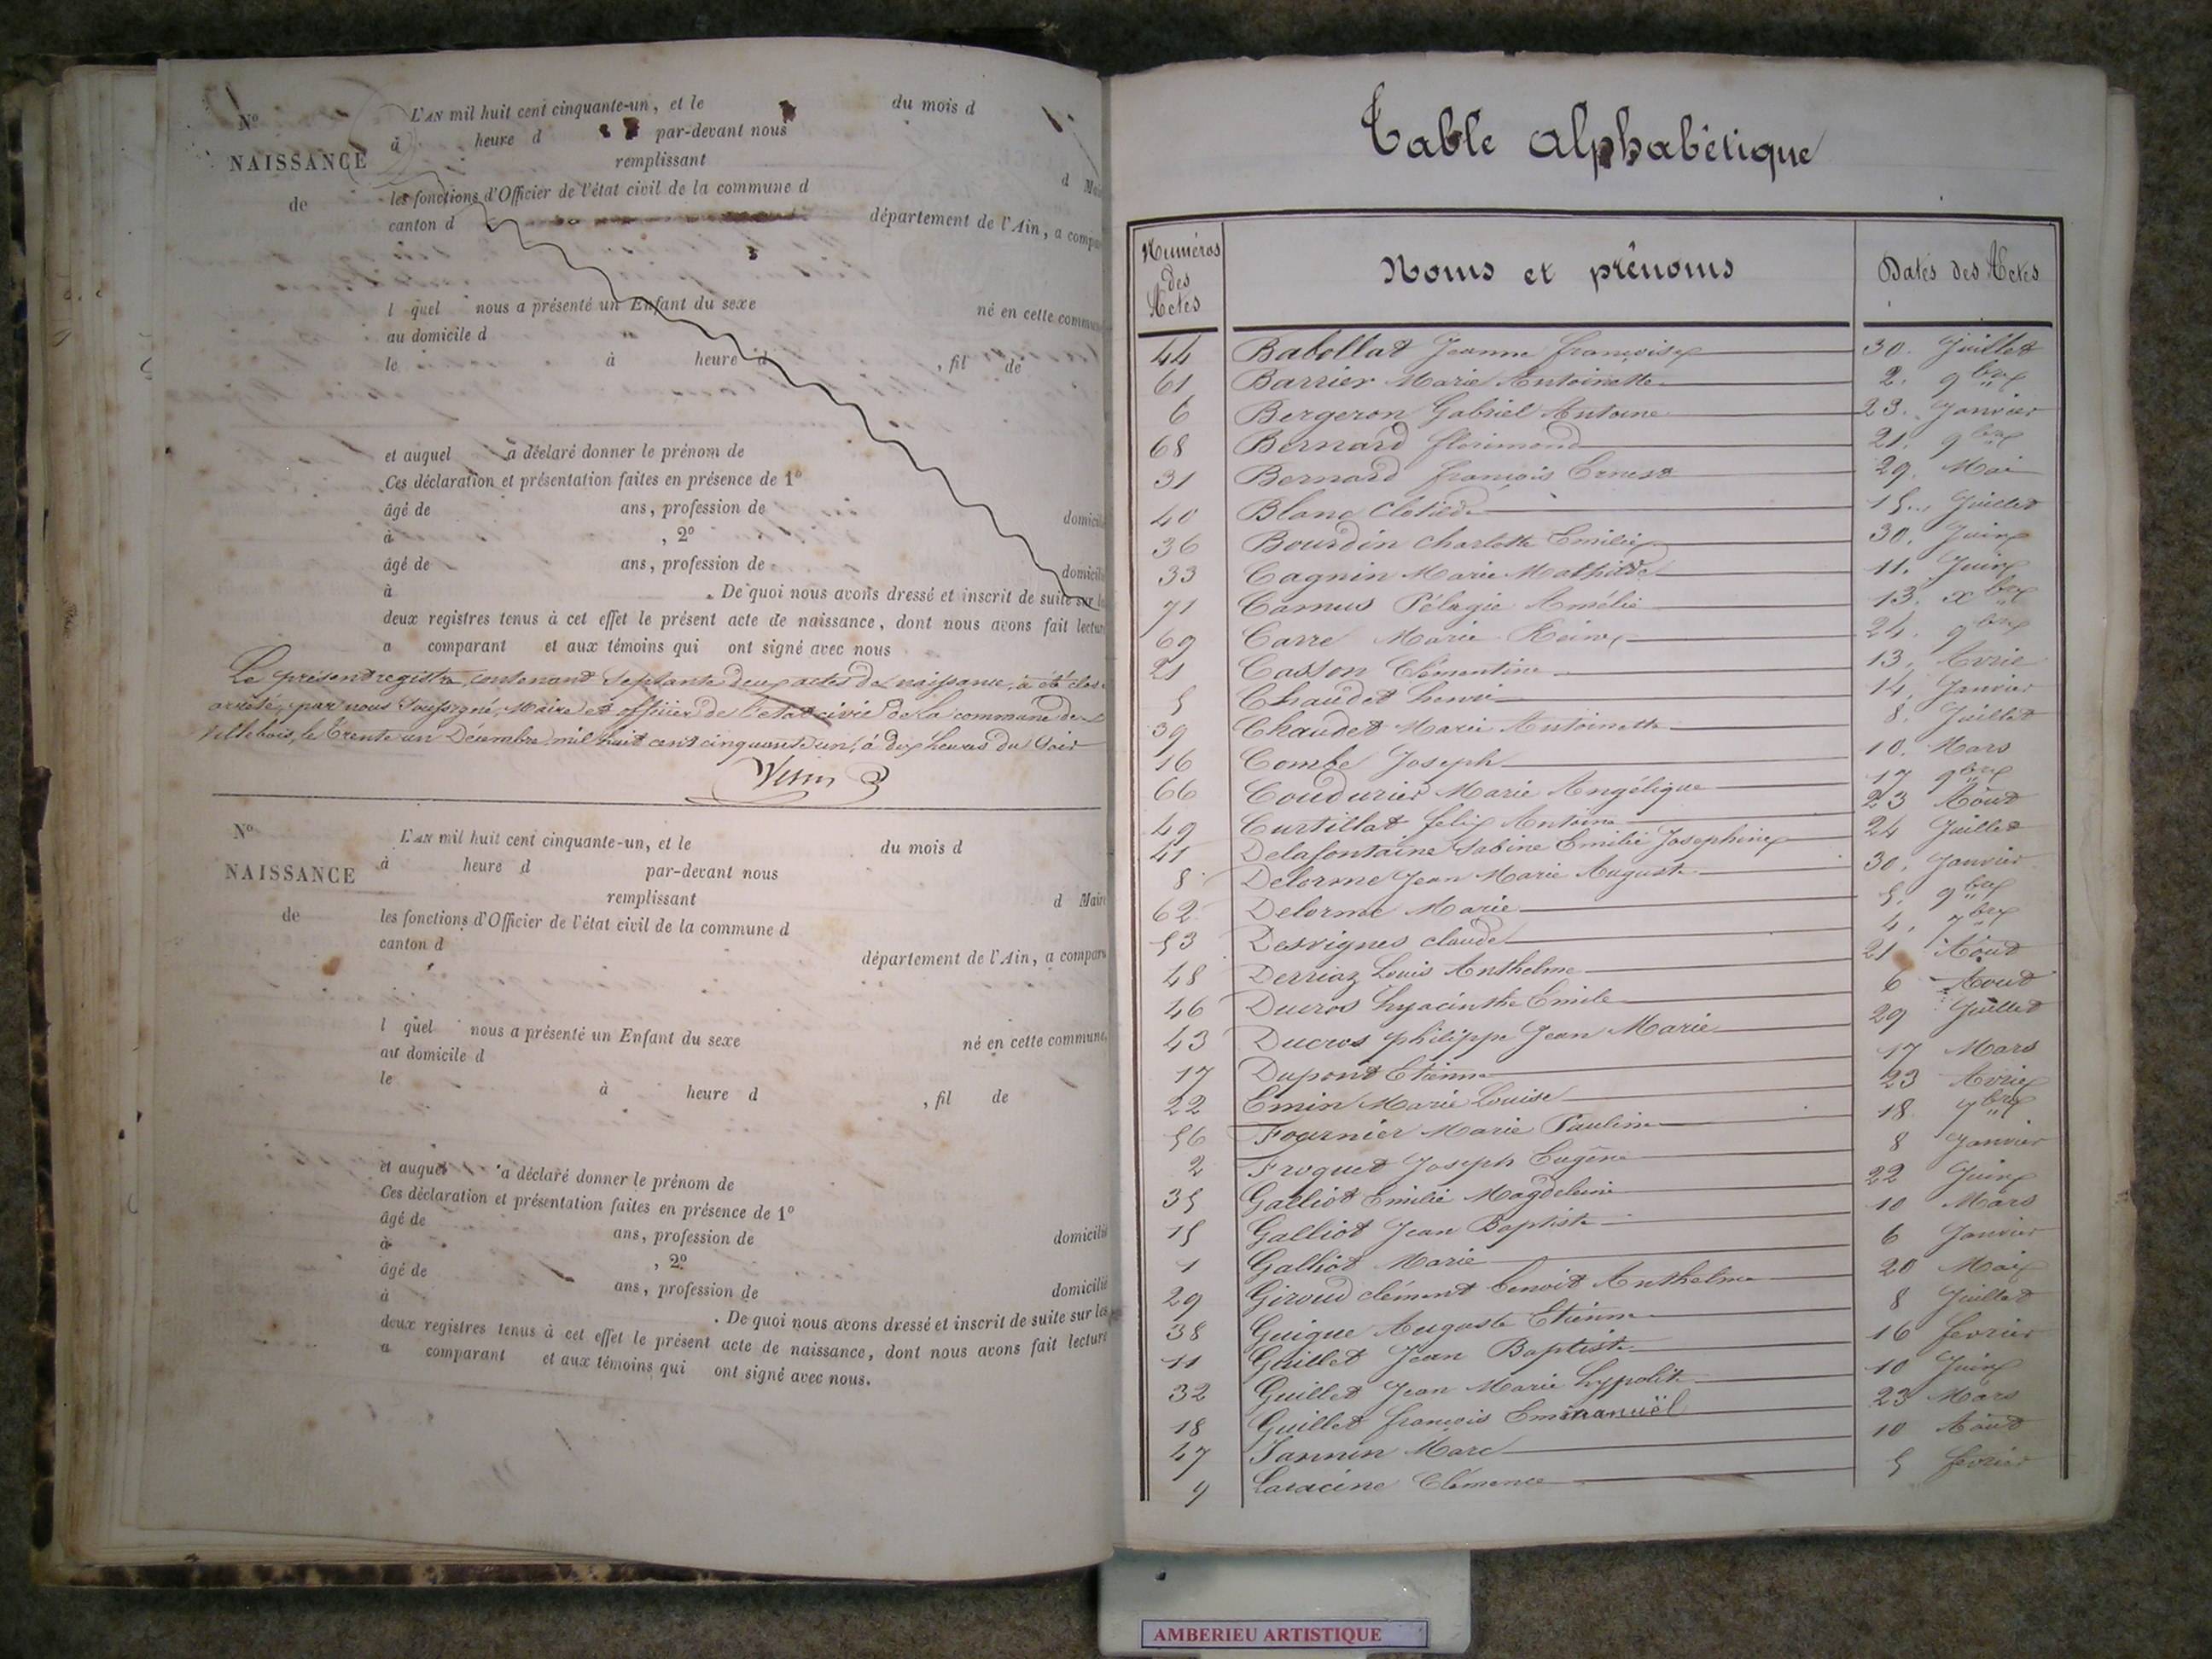 N° L'AN mil huit cent cinquante-un, et le du mois d
à heure d par-devant nous
NAISSANCE remplissant
d Mai
de les fonctions d'Officier de l'état civil de la commune d
canton d département de l'Ain, a compa
l quel nous a présenté un Enfant du sexe né en cette commun
au domicile d
le à heure d , fil de
et auquel a déclaré donner le prénom de
Ces déclaration et présentation faites en présence de 1°
âgé de ans, profession de domicili
à , 2°
âgé de ans, profession de domicili
à . De quoi nous avons dressé et inscrit de suite sur le
deux registres tenus à cet effet le présent acte de naissance, dont nous avons fait lectur
a comparant et aux témoins qui ont signé avec nous
Le présent registre, contenant Septante deux actes de naissance, a été clos
arrêté, par nous Soussigné, Maire et officier de l'état civil de la commune de
Villebois, le Trente un Décembre mil huit cent cinquante un, à dix heures du Soir
N° L'AN mil huit cent cinquante-un, et le du mois d
à heure d par-devant nous
NAISSANCE remplissant d Maire
de les fonctions d'Officier de l'état civil de la commune d
canton d département de l'Ain, a comparu
l quel nous a présenté un Enfant du sexe né en cette commune,
au domicile d
le à heure d , fil de
et auquel a déclaré donner le prénom de
Ces déclaration et présentation faites en présence de 1°
âgé de ans, profession de domicilié
à , 2°
âgé de ans, profession de domicilié
à . De quoi nous avons dressé et inscrit de suite sur les
deux registres tenus à cet effet le présent acte de naissance, dont nous avons fait lecture
a comparant et aux témoins qui ont signé avec nous.
Table alphabétique
Numéros des Actes Noms et prénoms Dates des Actes
44 Babollat Jeanne françoise 30. Juillet
61 Barrier Marie Antoinette 2. 9bre
6 Bergeron Gabriel Antoine 23. Janvier
68 Bernard florimond 21. 9bre
31 Bernard françois Ernest 29. Mai
40 Blanc Clotilde 15. Juillet
36 Bourdin charlotte Emilie 30. Juin
33 Cagnin Marie Mathilde 11. Juin
71 Camus Pélagie Amélie 13. xbre
69 Carre Marie Reine 24. 9bre
21 Casson Clémentine 13. Avril
5 Chaudet henri 14. Janvier
39 Chaudet Marie Antoinette 8. Juillet
16 Combe Joseph 10. Mars
66 Coudurier Marie Angélique 17 9bre
49 Curtillat felix Antoine 23 Août
41 Delafontaine Sabine Emilie Josephine 24 Juillet
8 Delorme Jean Marie Auguste 30. Janvier
62 Delorme Marie 5. 9bre
53 Desvignes claude 4. 7bre
48 Derriaz Louis Anthelme 21 Août
46 Ducros hyacinthe Émile 6 Aout
43 Ducros philippe Jean Marie 29 Juillet
17 Dupont Etienne 17 Mars
22 Emin Marie Louise 23 Avril
56 Fournier Marie Pauline 18 7bre
2 Froquet Joseph Eugène 8 Janvier
35 Galliot Emilie Magdeleine 22 Juin
15 Galliot Jean Baptiste 10 Mars
1 Galliot Marie 6 Janvier
29 Giroud clément benoit Anthelme 20 Mai
38 Guigue Auguste Etienne 8 Juillet
11 Guillet Jean Baptiste 16 fevrier
32 Guillet Jean Marie hypolite 10 Juin
18 Guillet françois Emmanuël 23 Mars
47 Jannin Marc 10 Août
9 Laracine Clémence 5 fevrier
AMBERIEU ARTISTIQUE